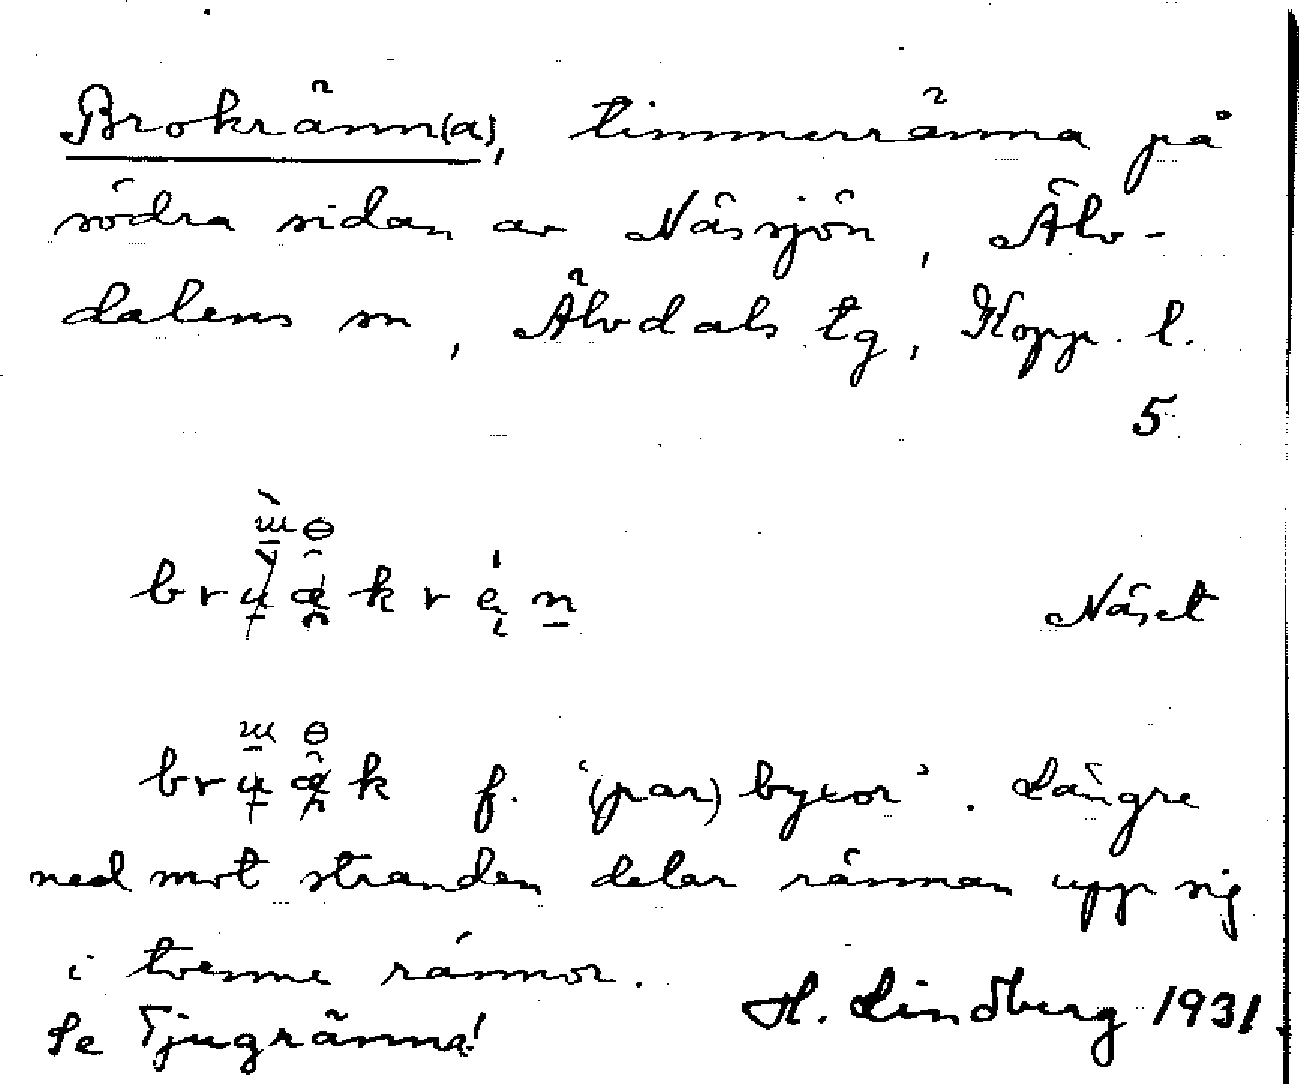 Brokränn(a), timmerränna på
södra sidan av Näsjön, Älv-
dalens sn, Älvdals tg, Kopp. l.
5
Näset
f. '(par) byxor'. Längre
ned mot stranden delar rännan upp sig
i tvenne rännor.
H. Lindberg 1931.
Se Tjugränna!